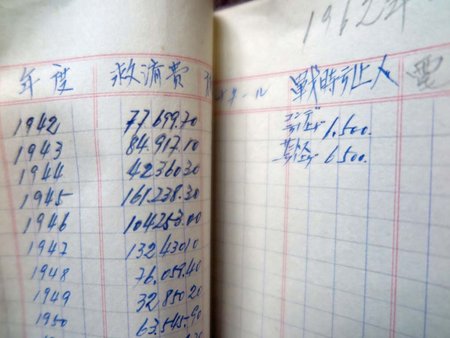 年度 救済費
1942 77699.70
1943 84.917.10
1944 42360.30
1945 161.238.30
1946 104253.00
1947 132430.10
1948 76.059.40
1949 32.850.20
1950 63.545.90
1962年
戦時引上人
1,500.
6500.